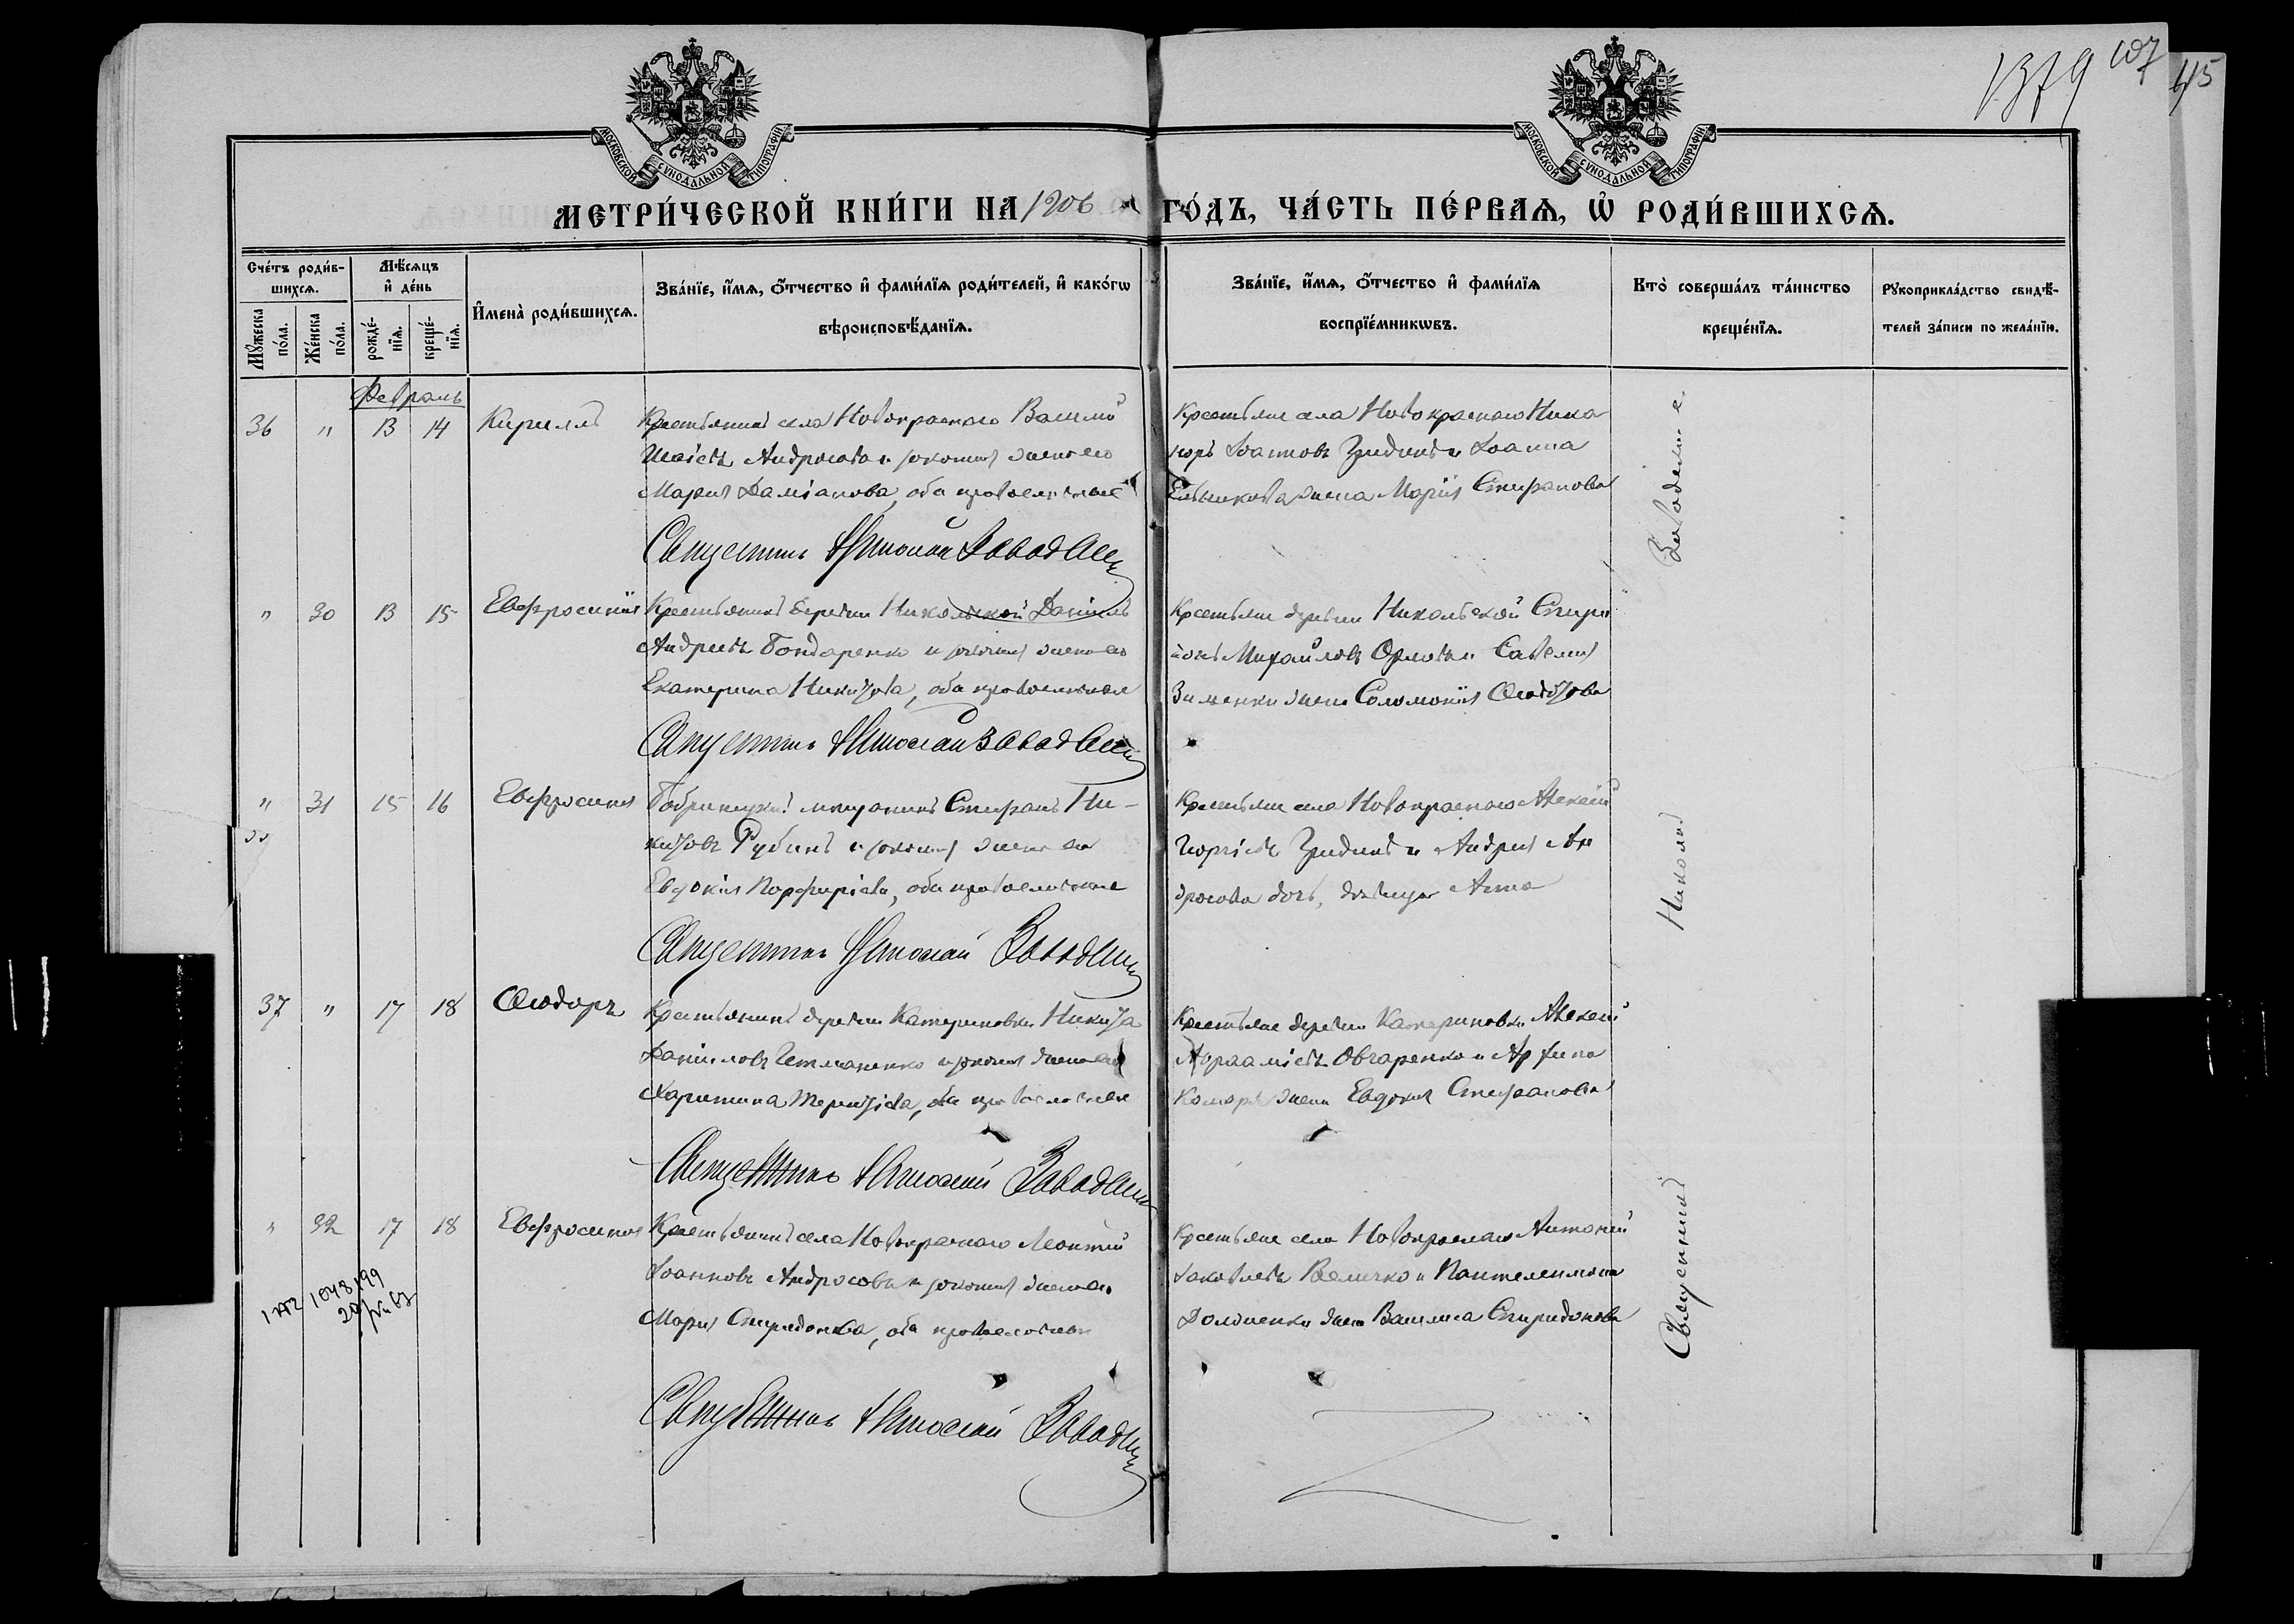 1379 107 45
МОСКОВСКОЙ СѴНОДАЛЬНОЙ ТИПОГРАФІИ
МОСКОВСКОЙ СѴНОДАЛЬНОЙ ТИПОГРАФІИ
МЕТРИ́ЧЕСКОЙ КНИ́ГИ НА 1906 ГО́ДЪ, ЧА́СТЬ ПЕ́РВАѦ, Ѡ҆ РОДИ́ВШИХСѦ.
Сче́тъ роди́в-
шихсѧ.
Мꙋ́жеска по́ла.
Же́нска по́ла.
Мѣ́сѧцъ
и҆ де́нь
рожде́-нїѧ.
креще́-нїѧ.
И҆мена̀ роди́вшихсѧ.
Зва́нїе, и҆́мѧ, ѻ҆́тчество и҆ фами́лїѧ роди́телей, и҆ како́гѡ
вѣроисповѣ́данїѧ.
Зва́нїе, и҆́мѧ, ѻ҆́тчество и҆ фами́лїѧ
воспрїе́мникѡвъ.
Кто̀ соверша́лъ та́инство
креще́нїѧ.
Рꙋкоприкла́дство свидѣ́-
телей за́писи по жела́нїю.
Февраль
36 " 13 14 Кириллъ
Крестьянинъ села Новокраснаго Василій
Андросовъ и законная жена его
Марія Даміанова, оба православные
Священникъ Николай Завадскій
Крестьяне села Новокраснаго Ника
норъ Іоанновъ Гридинъ и Іоанна
жена Марія Стефанова
" 30 13 15 Евфросинія
Крестьянинъ деревни Никольской Даніилъ
Андреевъ Бондаренко и законная жена его
Екатерина Никитова, оба православные
Священникъ Николай Завадскій
Крестьяне деревни Никольской Спири
донъ Михайловъ Орловъ и Савелія
Зименки жена Соломонія Ѳеодорова
" 31 15 16 Евфросинія
Бобринецкій мещанинъ Стефанъ Ни-
китовъ Рубинъ и законная жена его
Евдокія Порфиріева, оба православные
Священникъ Николай Завадскій
Крестьяне села Новокраснаго Алексій
Георгіевъ Гридинъ и Андрея Ан
дросова дочь, девица Анна
37 " 17 18 Ѳеодоръ
Крестьянинъ деревни Катериновки Никита
Даніиловъ Гетманенко и законная жена его
Харитина Терентіева, оба православные
Священникъ Николай Завадскій
Крестьяне деревни Катериновки Алексій
Аврааміевъ Овчаренко и Архипа
Комаря жена Евдокія Стефанова
" 32 17 18 Евфросинія
Крестьянинъ села Новокраснаго Леонтій
Іоанновъ Андросовъ и законная жена его
Марія Спиридонова, оба православные
Священникъ Николай Завадскій
Крестьяне села Новокраснаго Антоній
Іаковлевъ Величко и Пантелеимона
Долженки жена Василиса Спиридонова
Священникъ Николай Заводскій